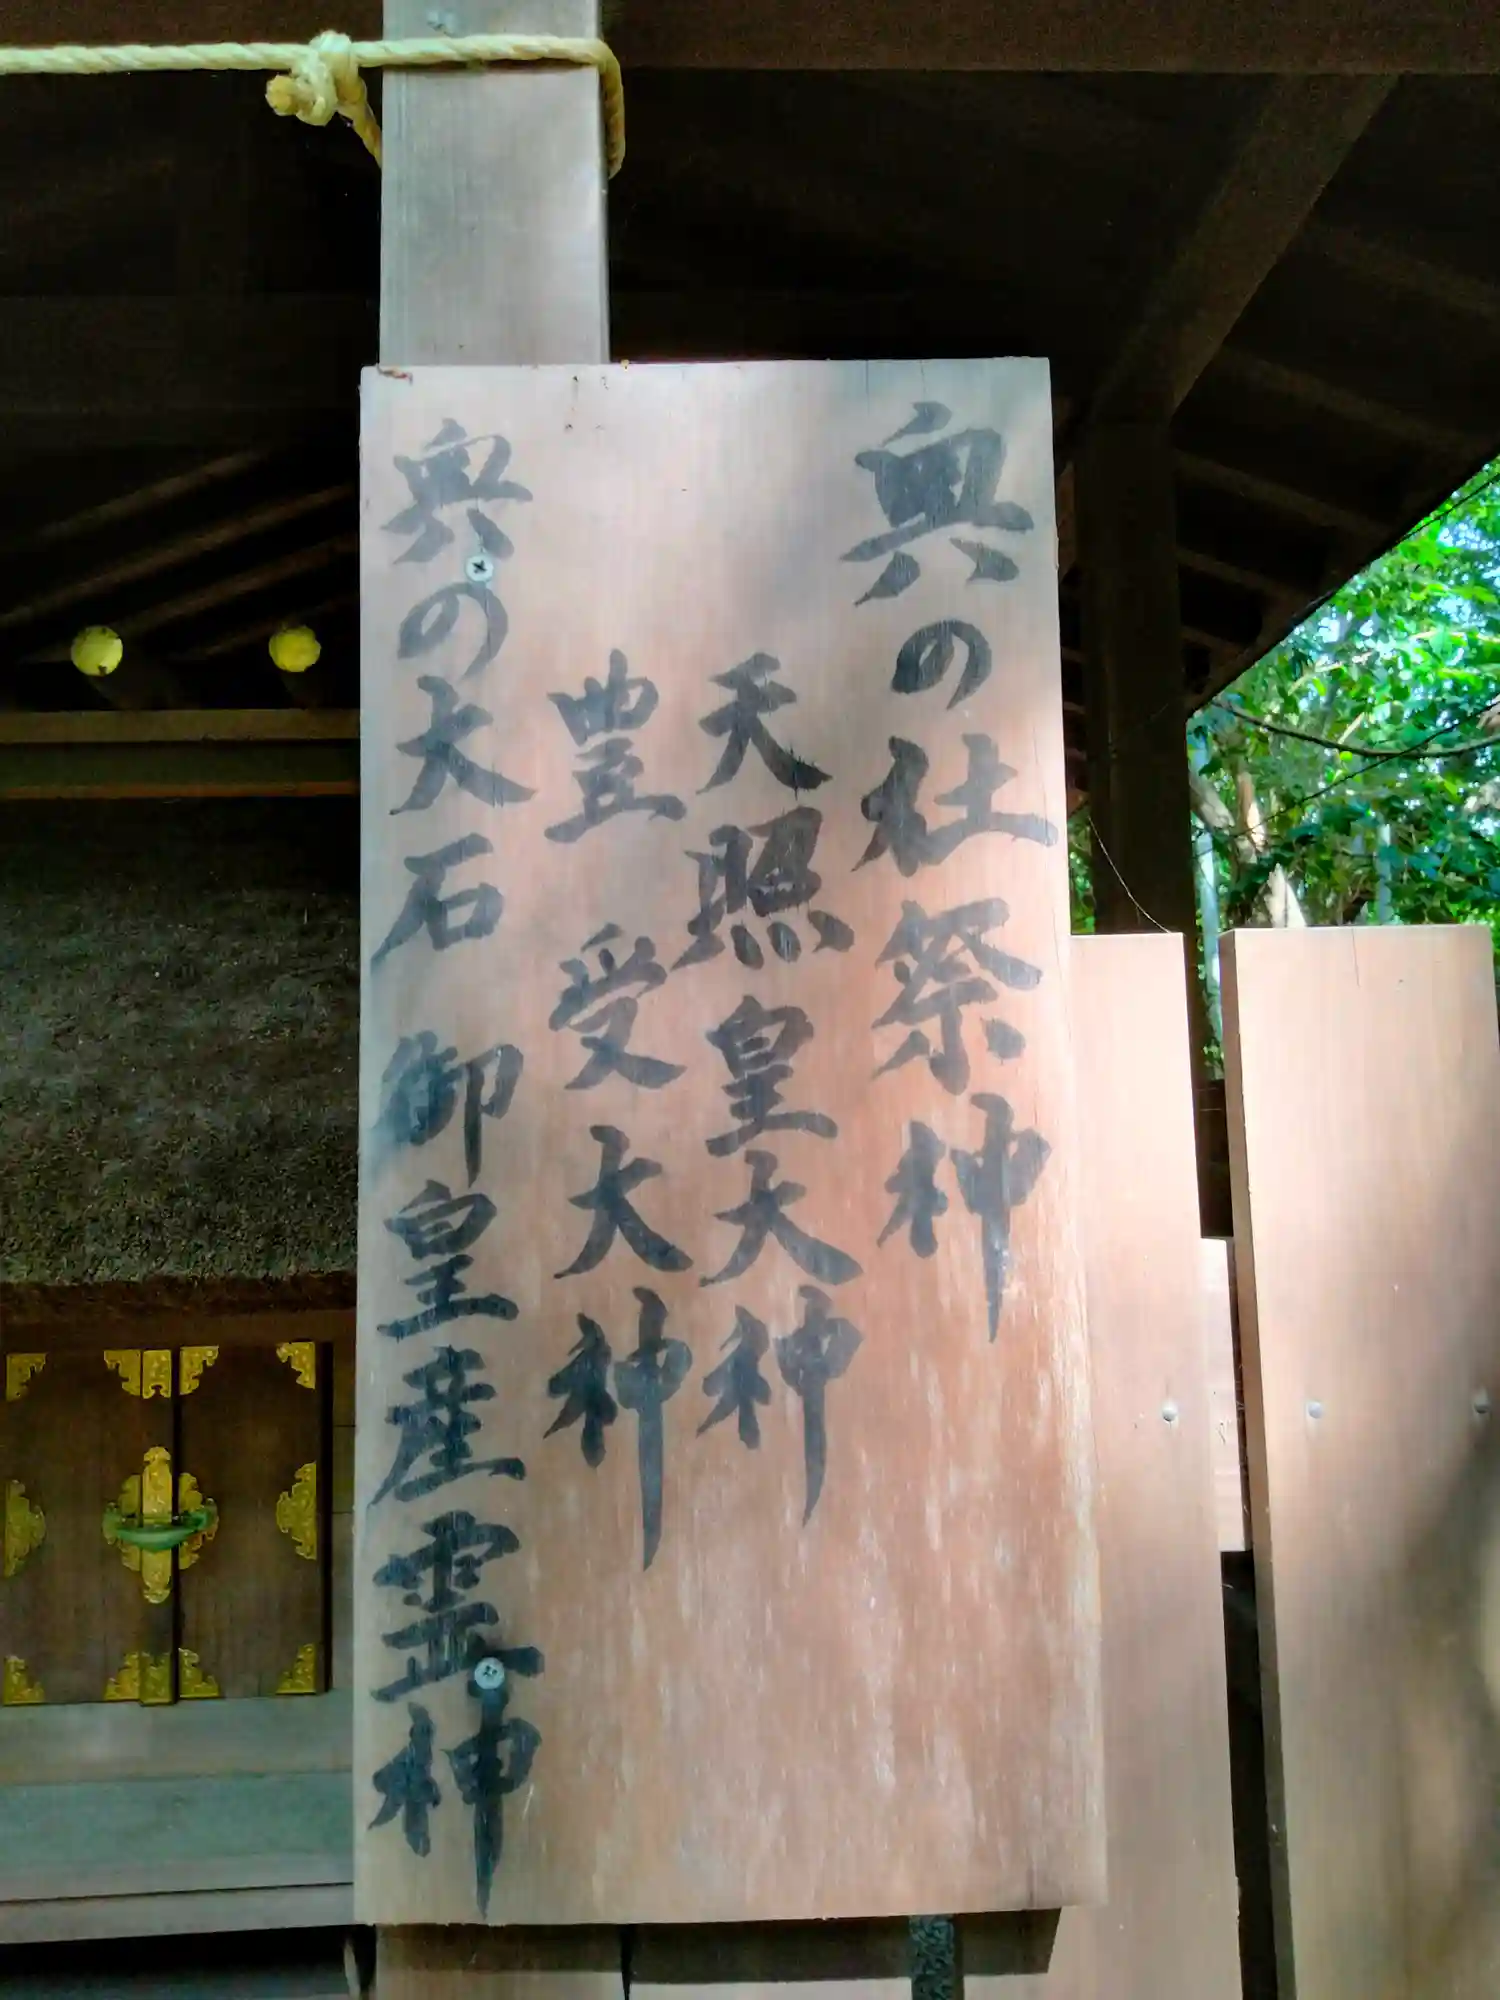 奥の社祭神
天照皇大神
豊受大神
奥の大石 御皇産霊神